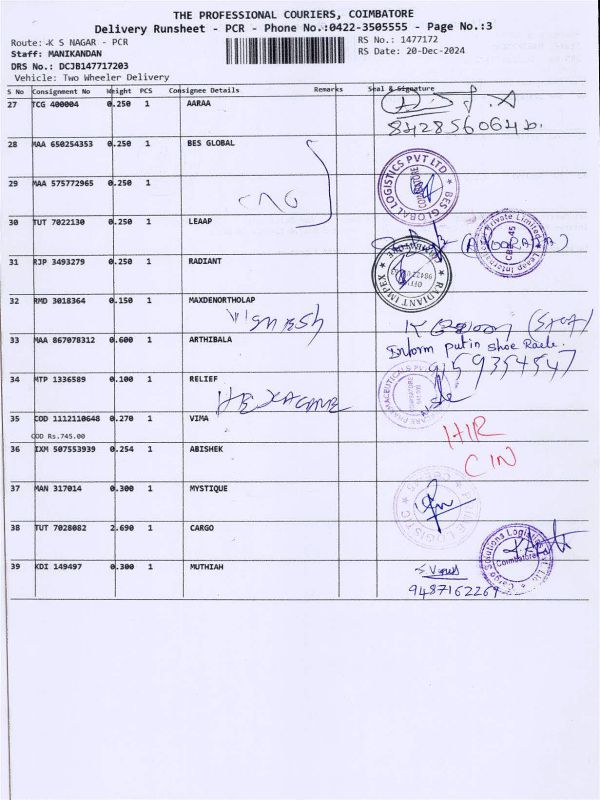 THE PROFESSIONAL COURIERS, COIMBATORE
Delivery Runsheet - PCR - Phone No.:0422-3505555 - Page No.:3
Route: K S NAGAR - PCR
RS No.: 1477172
Staff: MANIKANDAN
RS Date: 20-Dec-2024
DRS No.: DCJB147717203
Vehicle: Two Wheeler Delivery
S No Consignment No Weight PCS Consignee Details Remarks Seal & Signature
27 TCG 400004 0.250 1 AARAA
28 MAA 650254353 0.250 1 BES GLOBAL
BES GLOBAL LOGISTICS PVT LTD
COIMBATORE
29 MAA 575772965 0.250 1
30 TUT 7022130 0.250 1 LEAAP
31 RJP 3493279 0.250 1 RADIANT
RADIANT IMPEX
COIMBATORE
32 RMD 3018364 0.150 1 MAXDENORTHOLAP
33 MAA 867078312 0.600 1 ARTHIBALA
Inform put in shoe Rack.
9159354547
34 MTP 1336589 0.100 1 RELIEF
35 COD 1112110648 0.270 1 VIMA
COD Rs.745.00
HIR
CIN
36 IXM 507553939 0.254 1 ABISHEK
37 MAN 317014 0.300 1 MYSTIQUE
38 TUT 7028082 2.690 1 CARGO
Cargo Solutions Logistics
Coimbatore
39 KDI 149497 0.300 1 MUTHIAH
9487162269